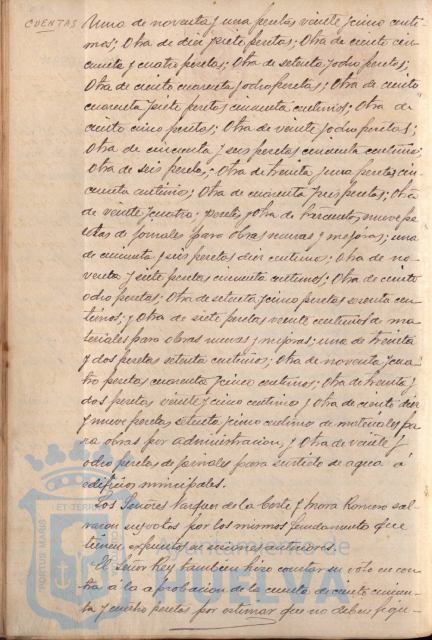 CUENTAS
Una de noventa y una pesetas veinte y cinco centi-
mos; Otra de diez y siete pesetas; Otra de ciento cin-
cuenta y cuatro pesetas; Otra de setenta y ocho pesetas;
Otra de ciento cuarenta y ocho pesetas; Otra de ciento
cuarenta y siete pesetas cincuenta centimos; Otra de
ciento cinco pesetas; Otra de veinte y ocho pesetas;
Otra de cincuenta y seis pesetas cincuenta centimos;
Otra de seis pesetas; Otra de treinta y una pesetas cin-
cuenta centimos; Otra de cuarenta y seis pesetas; Otra
de veinte y cuatro pesetas y otra de nueve pe-
setas de jornales para obras nuevas y mejoras; una
de cincuenta y seis pesetas diez centimos; Otra de no-
venta y siete pesetas cincuenta centimos; Otra de ciento
ocho pesetas; Otra de setenta y cinco pesetas sesenta cen-
timos; y Otra de siete pesetas veinte centimos de ma-
teriales para obras nuevas y mejoras; una de treinta
y dos pesetas setenta centimos; Otra de noventa y cua-
tro pesetas cuarenta y cinco centimos; Otra de treinta y
dos pesetas veinte y cinco centimos y Otra de ciento diez
y nueve pesetas setenta y cinco centimos de materiales pa-
ra obras por administracion, y Otra de veinte y
ocho pesetas de jornales para surtido de agua á
edificios municipales.
Los Señores Vazquez de la Corte y Mora Romero sal-
varon sus votos por los mismos fundamentos que
tienen expuestos en sesiones anteriores.
El Señor Rey tambien hizo constar su voto en con-
tra á la aprobacion de la cuenta de ciento cincuen-
ta y cuatro pesetas por estimar que no deben figu-
PORTUS MARIS
ET TERRAE
Ayuntamiento de
HUELVA